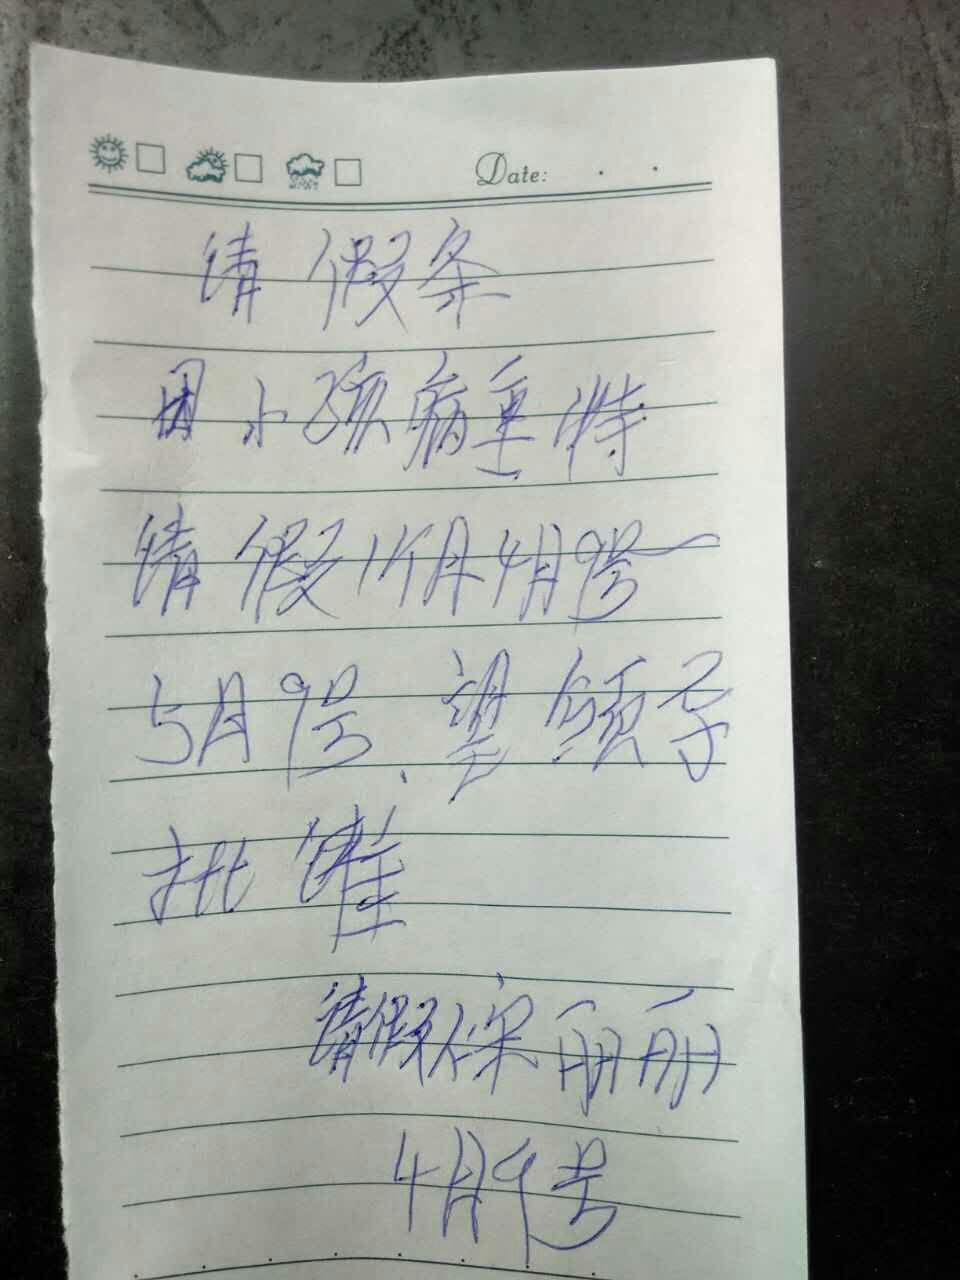 Date:
请假条
因小孩病重特
请假1个月4月9号—
5月9号.望领导
批准
请假人宋丽丽
4月9号